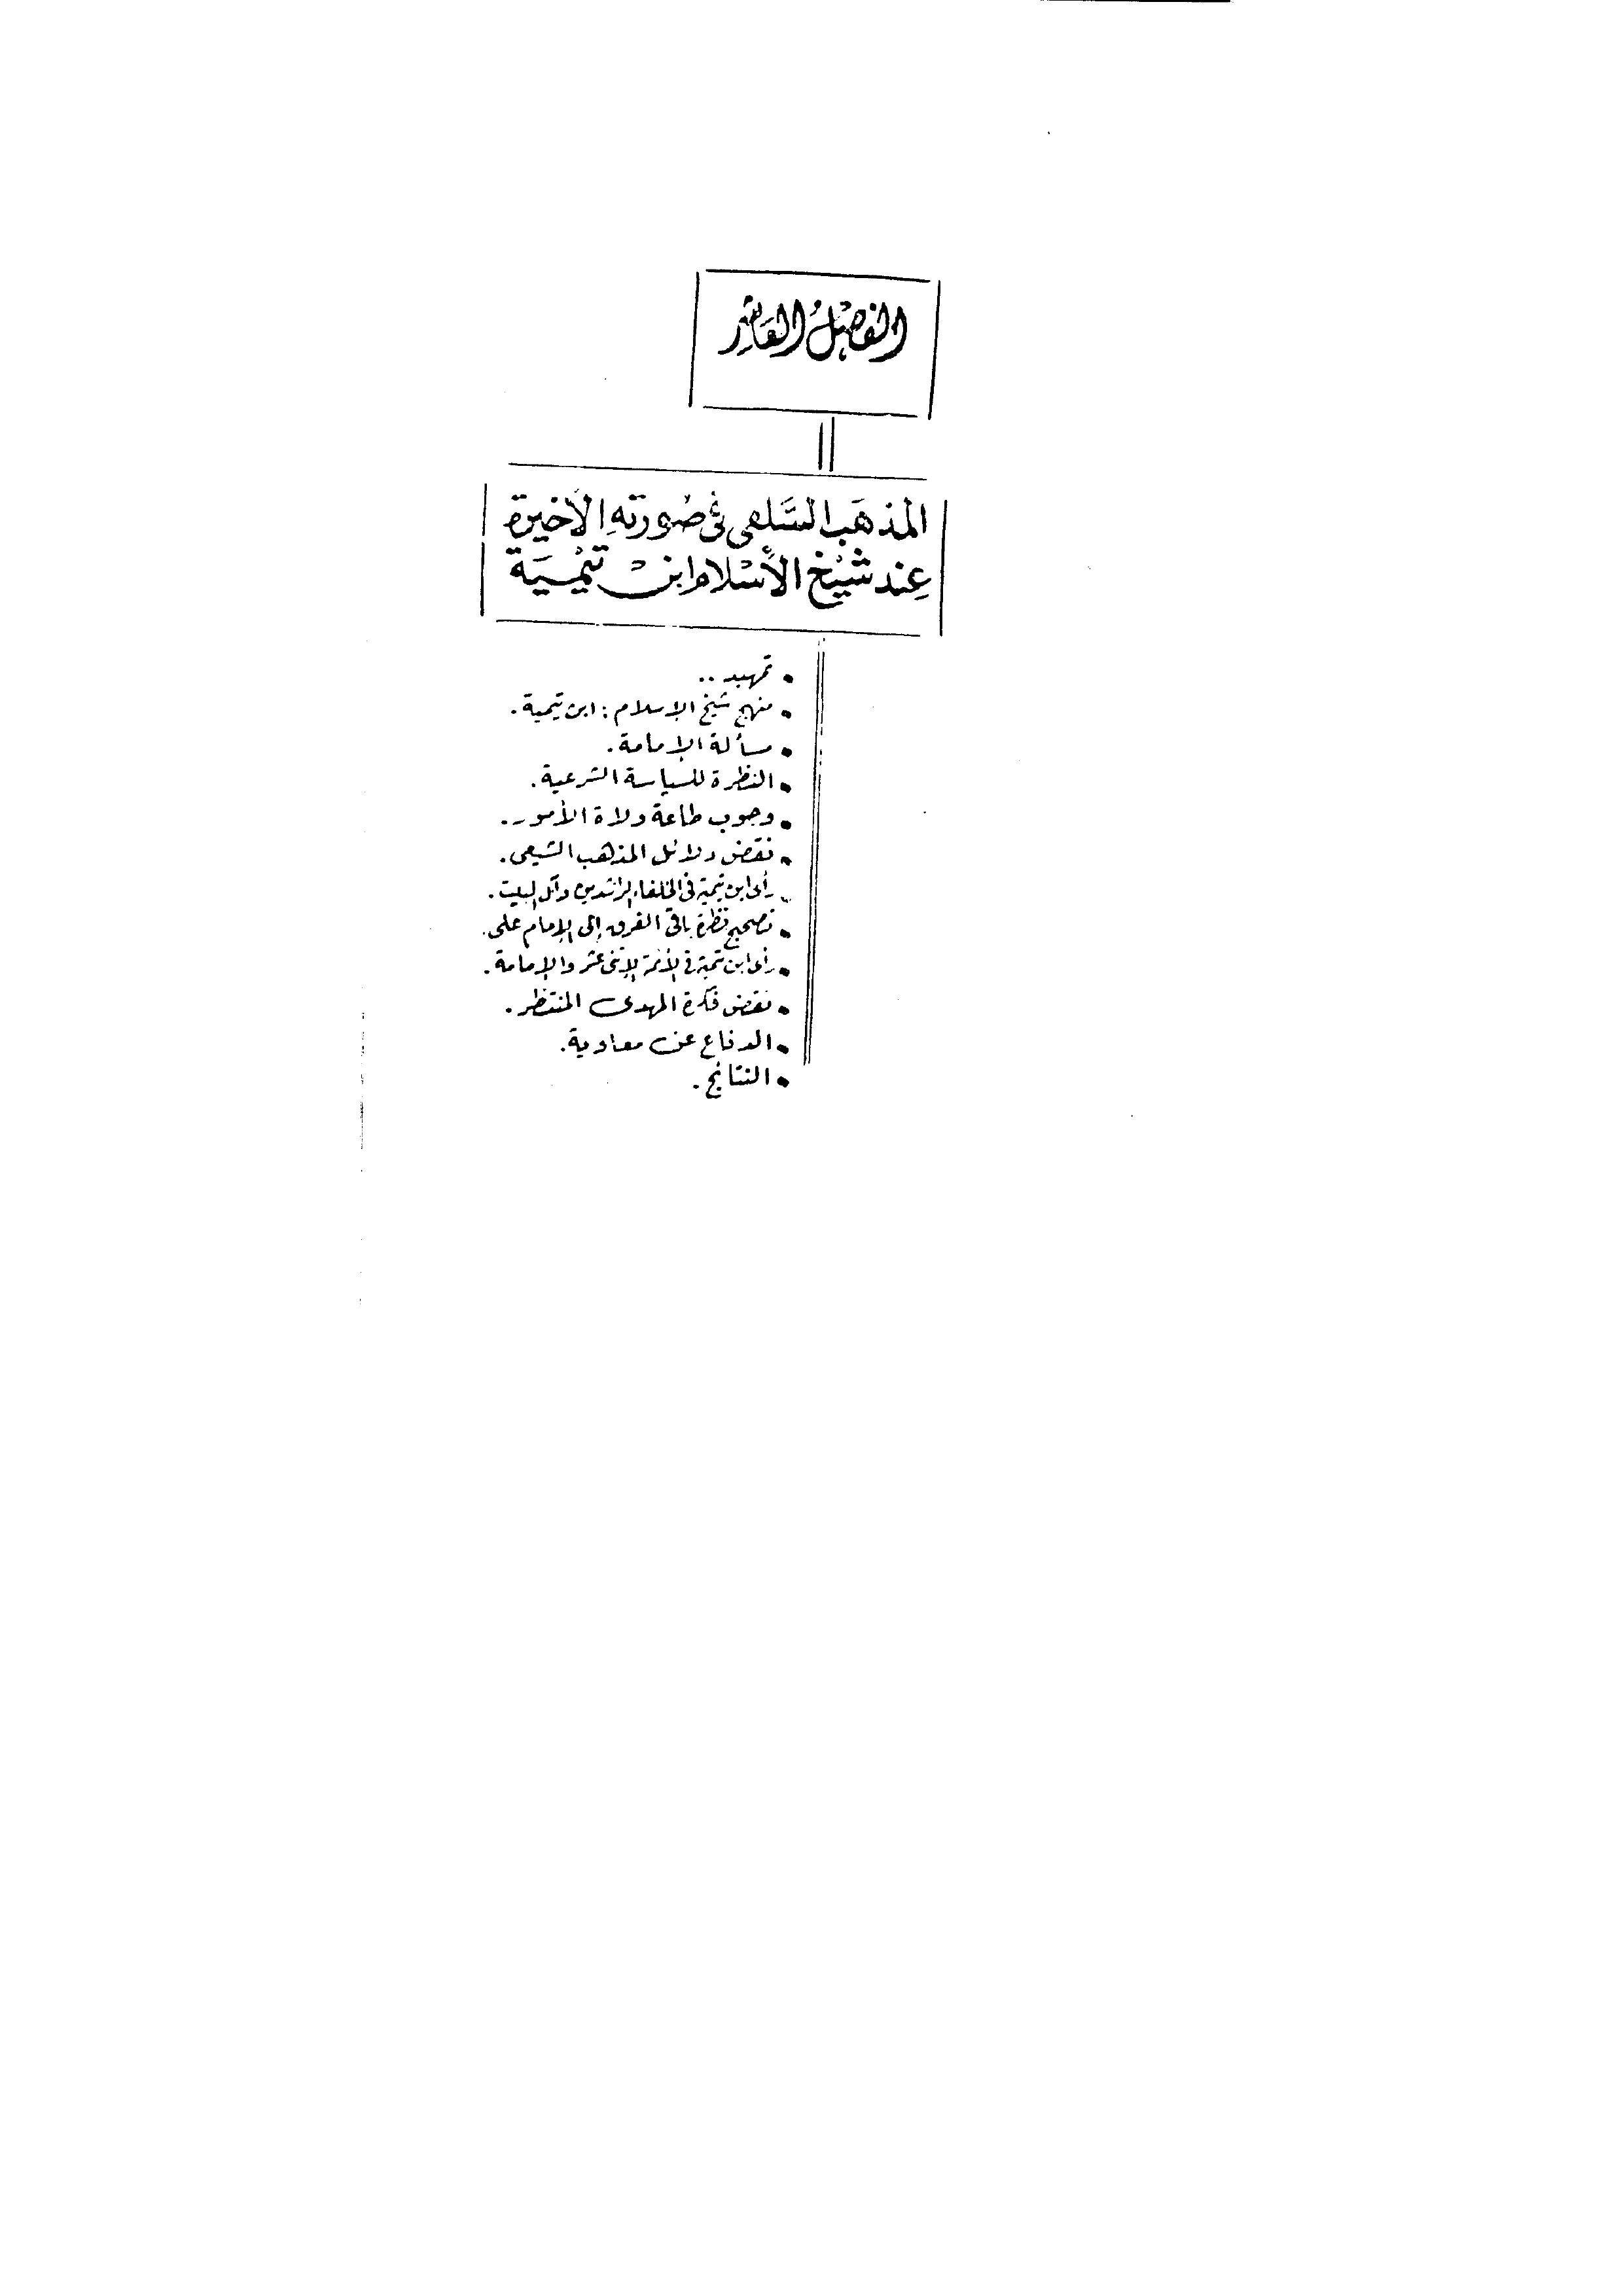 الفصل العاشر
المذهَب السَّلفى فى صُورتهِ الأخيرة
عِند شيْخ الأسْلام ابنْ تيْميَة
• تمهيد ..
• منهج شيخ الإسلام : ابن تيمية .
• مسألة الإمامة .
• النظرة للسياسة الشرعية .
• وجوب طاعة ولاة الأمور .
• نقض دلائل المذهب الشيعى .
• رأى ابن تيمية فى الخلفاء الراشدين وآل البيت .
• تصحيح نظرة باقى الفرق إلى الإمام على .
• رأى ابن تيمية فى الأئمة الإثنى عشر والإمامة .
• نقض فكرة المهدى المنتظر .
• الدفاع عن معاوية .
• النتائج .